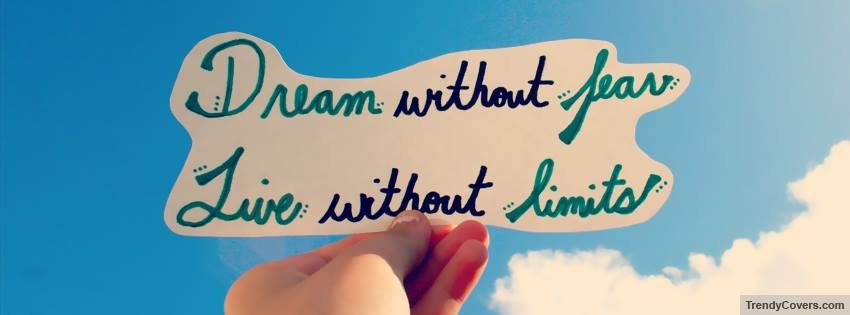 Dream without fear
Live without limits
TrendyCovers.com